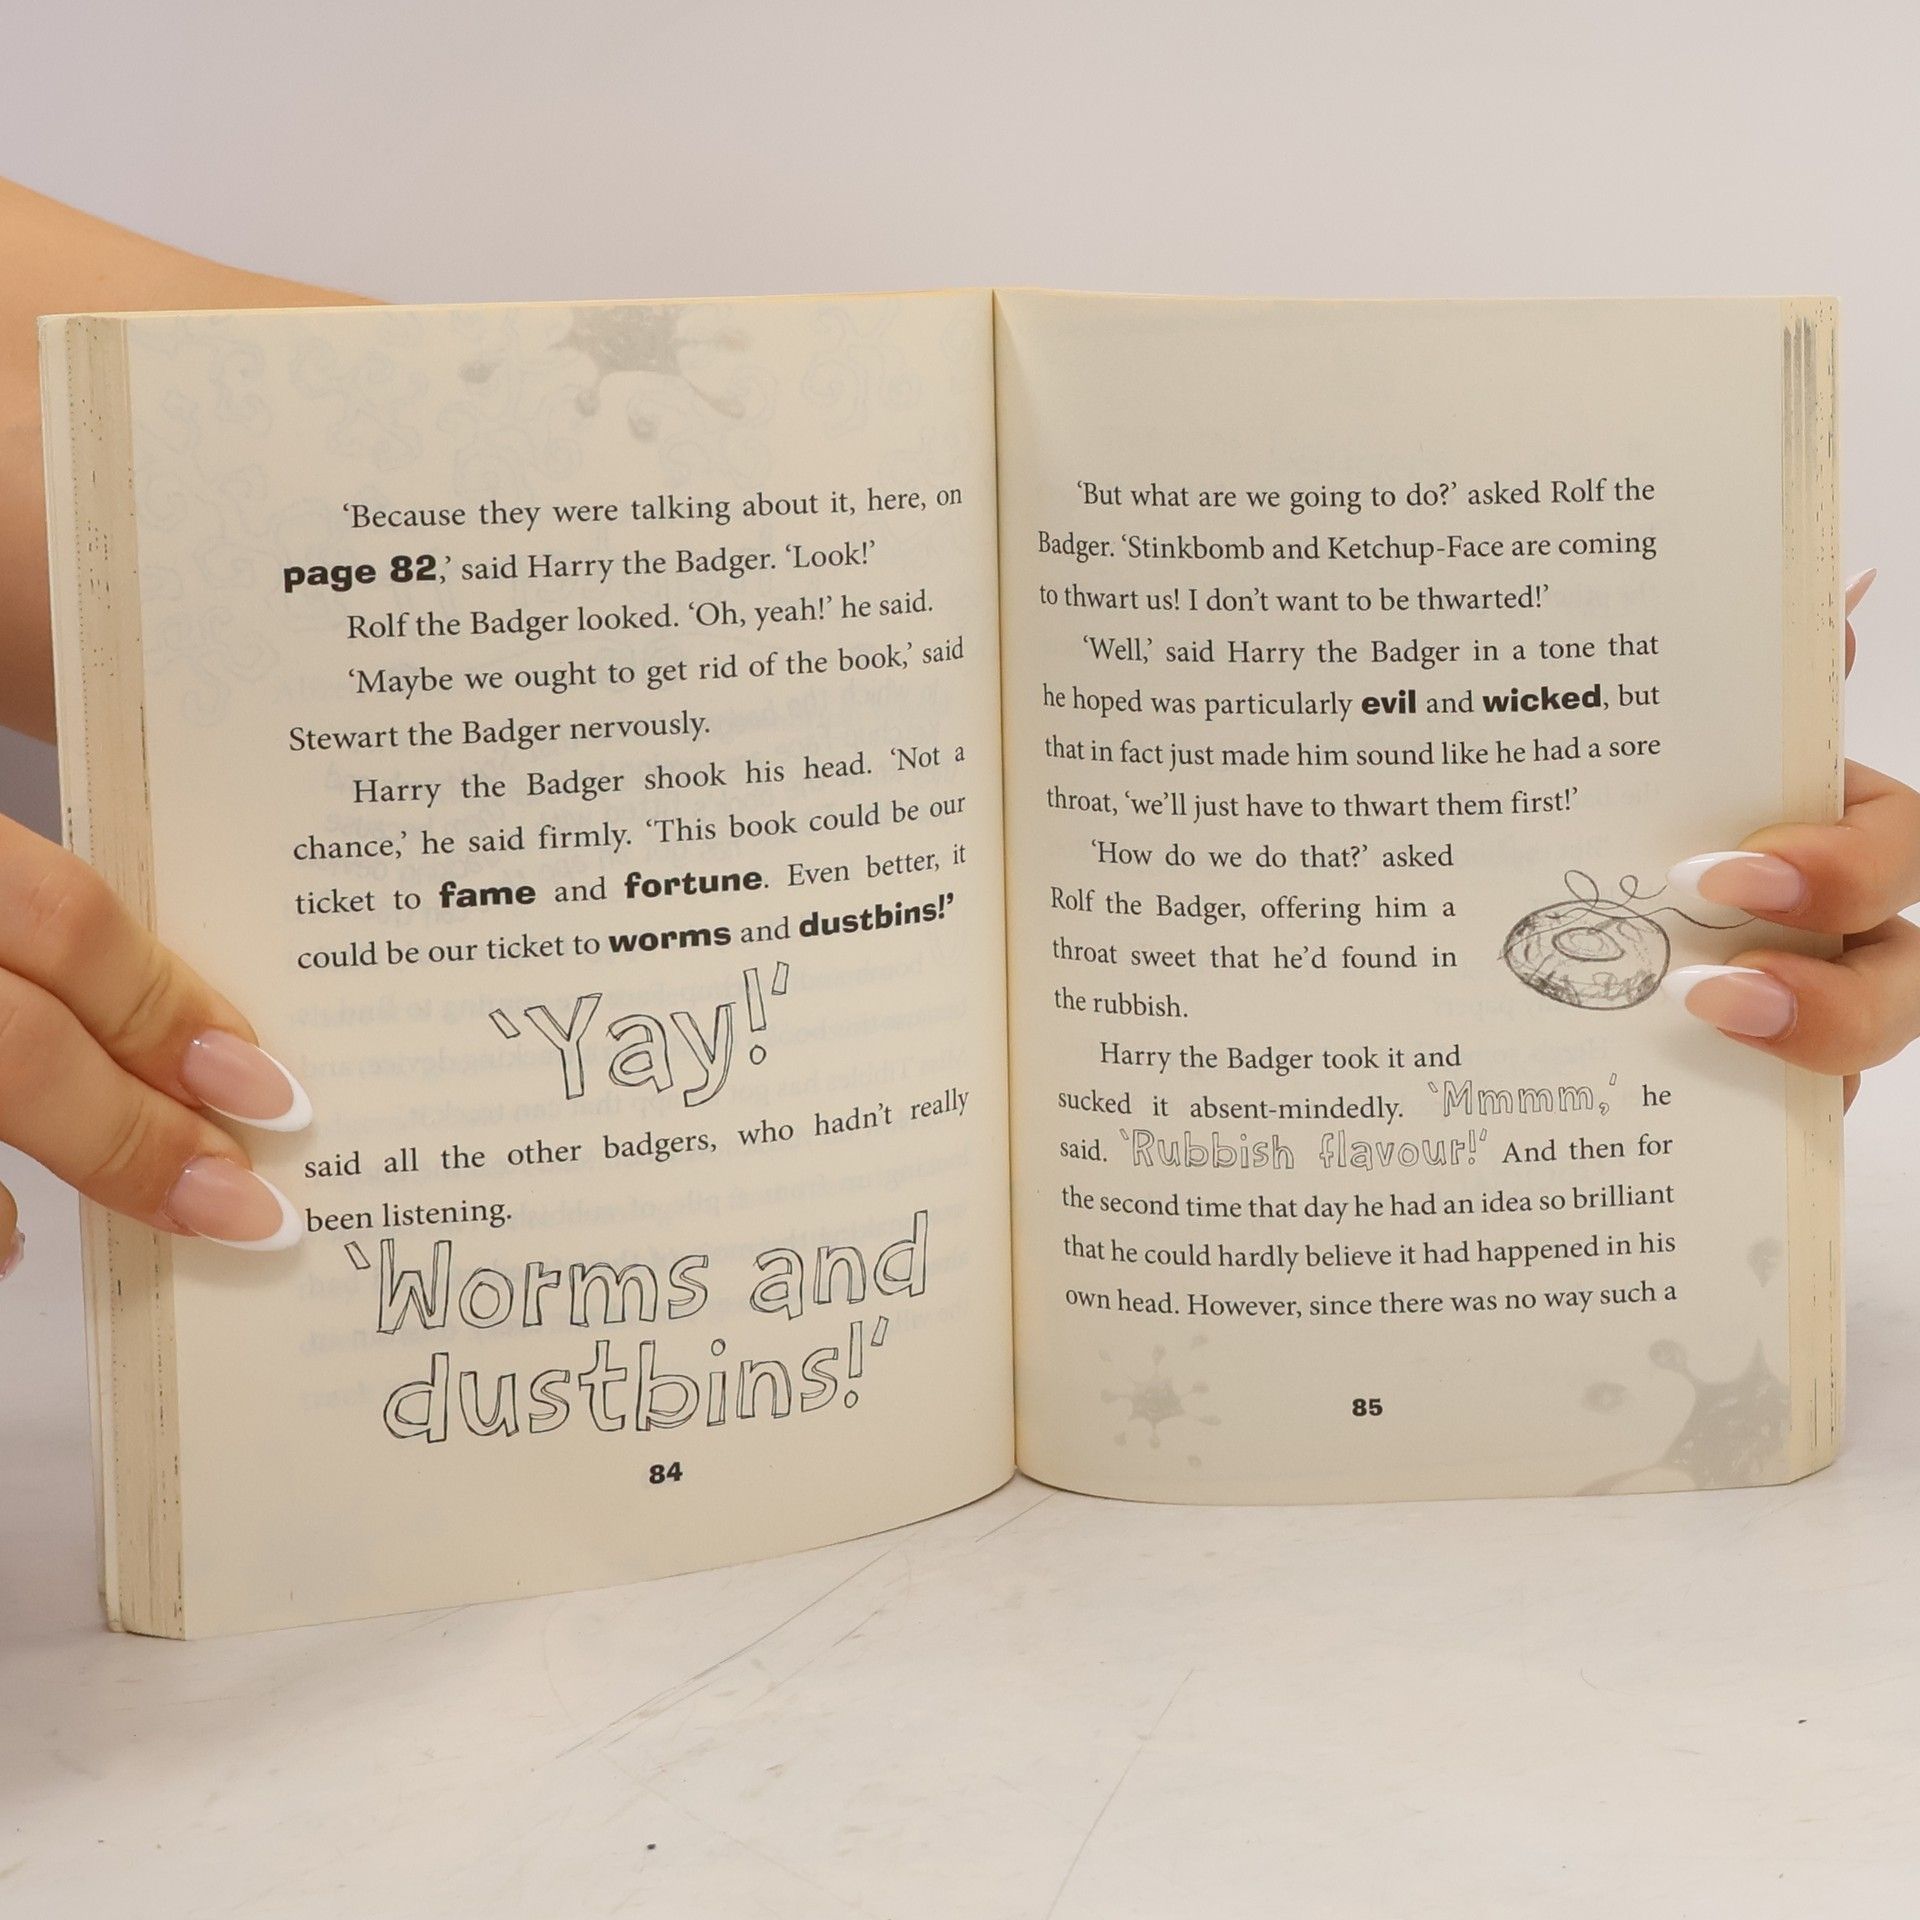 ‘Because they were talking about it, here, on
page 82,’ said Harry the Badger. ‘Look!’
Rolf the Badger looked. ‘Oh, yeah!’ he said.
‘Maybe we ought to get rid of the book,’ said
Stewart the Badger nervously.
Harry the Badger shook his head. ‘Not a
chance,’ he said firmly. ‘This book could be our
ticket to fame and fortune. Even better, it
could be our ticket to worms and dustbins!’
‘Yay!’
said all the other badgers, who hadn’t really
been listening.
‘Worms and
dustbins!’
84
‘But what are we going to do?’ asked Rolf the
Badger. ‘Stinkbomb and Ketchup-Face are coming
to thwart us! I don’t want to be thwarted!’
‘Well,’ said Harry the Badger in a tone that
he hoped was particularly evil and wicked, but
that in fact just made him sound like he had a sore
throat, ‘we’ll just have to thwart them first!’
‘How do we do that?’ asked
Rolf the Badger, offering him a
throat sweet that he’d found in
the rubbish.
Harry the Badger took it and
sucked it absent-mindedly. ‘Mmmm,’ he
said. ‘Rubbish flavour!’ And then for
the second time that day he had an idea so brilliant
that he could hardly believe it had happened in his
own head. However, since there was no way such a
85